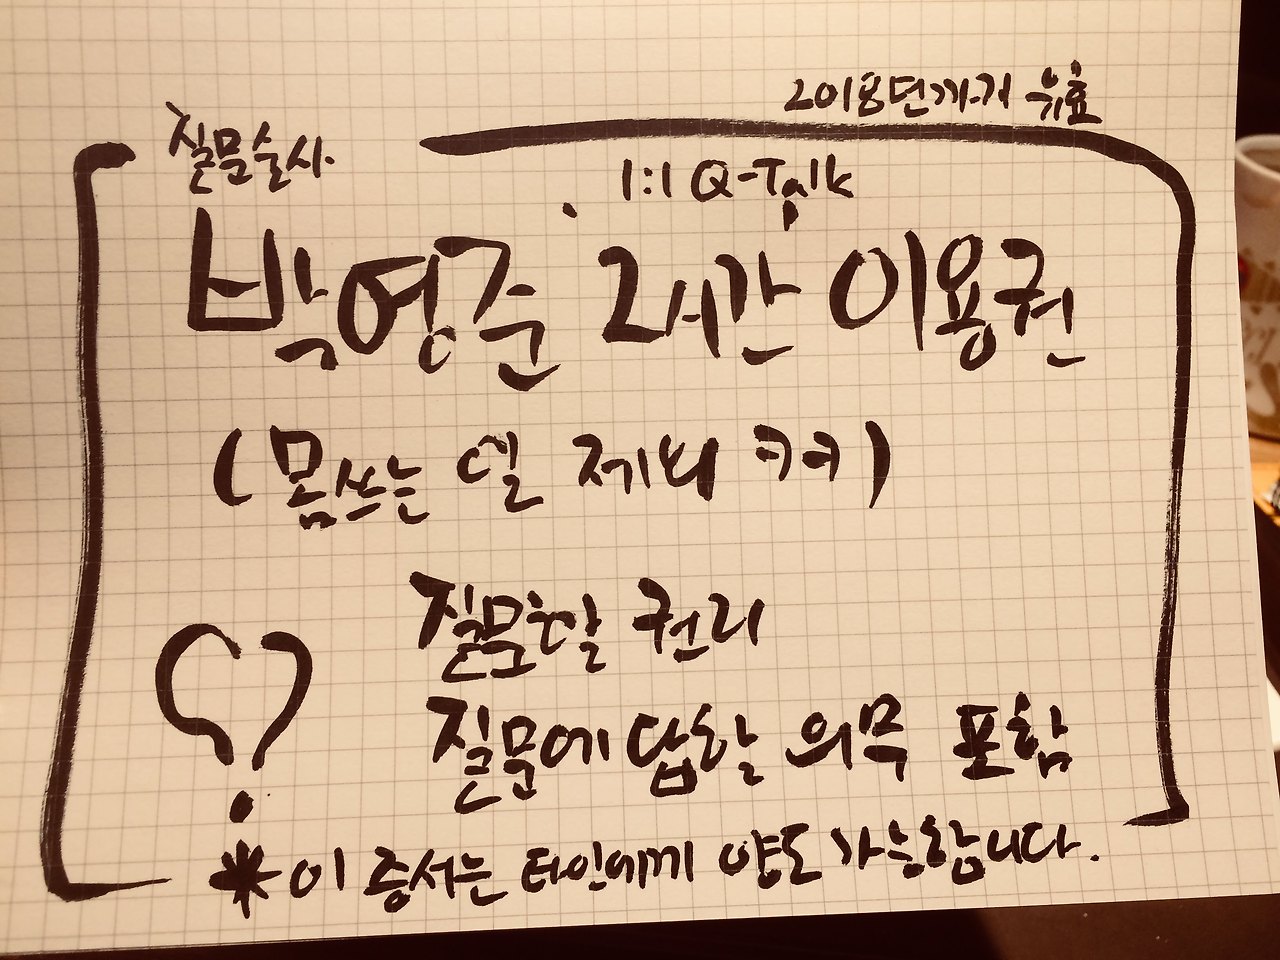 2018년까지 유효
질문술사
1:1 Q-Talk
박영준 2시간 이용권
(몸쓰는 일 제외 ㅋㅋ)
질문할 권리
질문에 답할 의무 포함
*이 증서는 타인에게 양도 가능합니다.